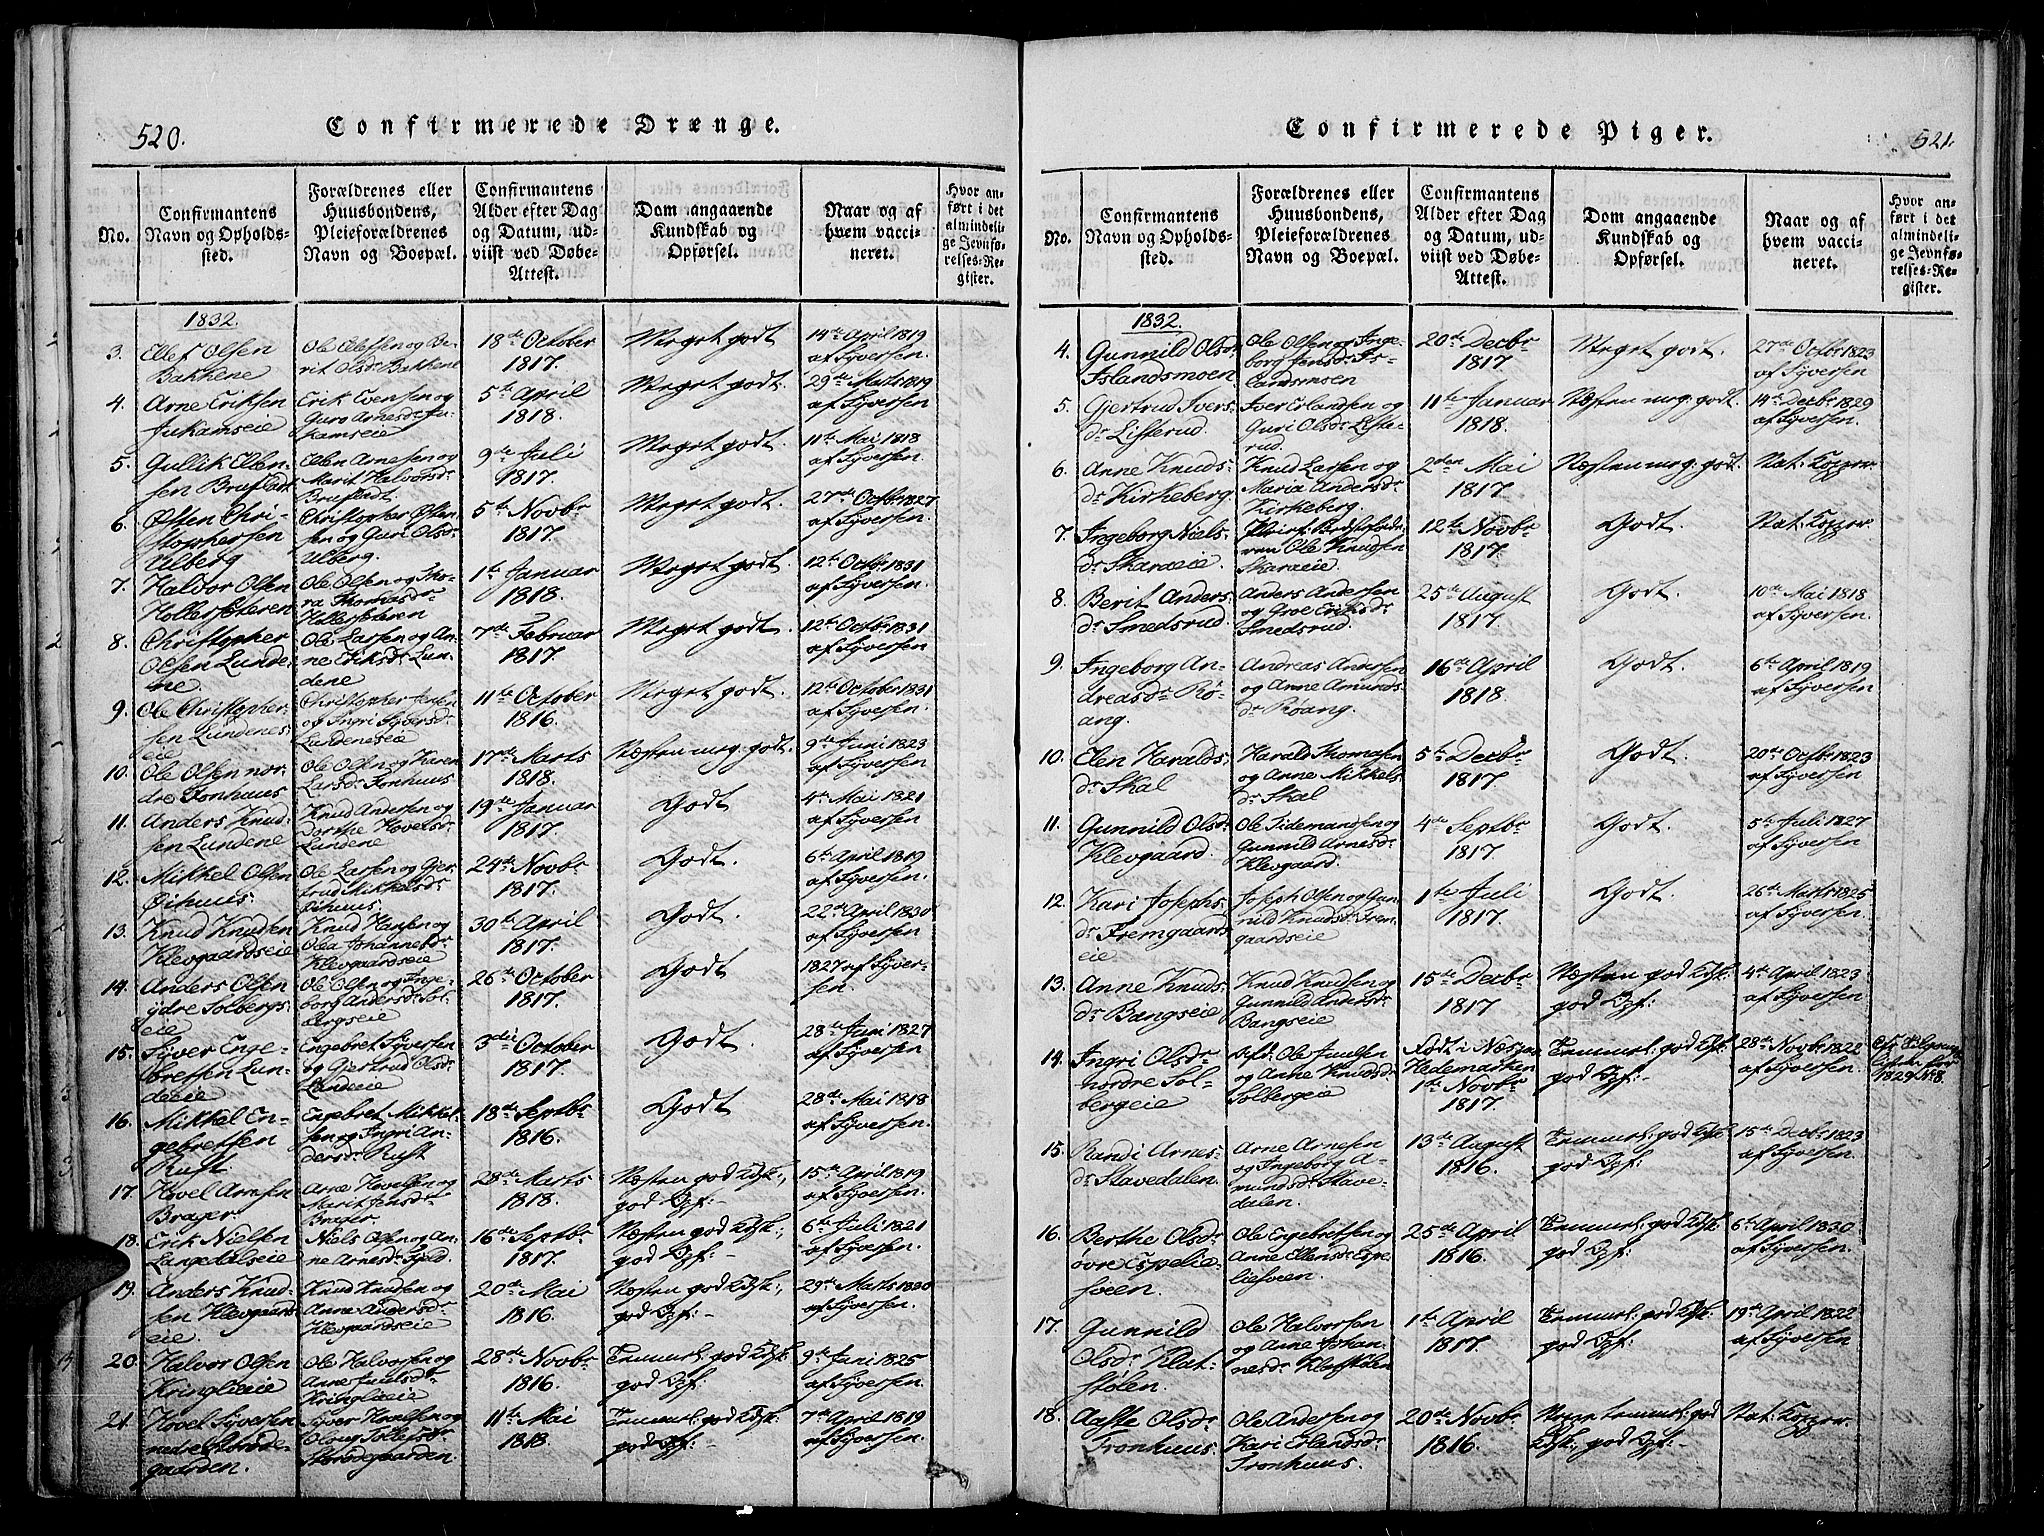 520.
Confirmerede Drænge.
No.
Confirmantens
Navn og Opholds-
sted.
Forældrenes eller
Huusbondens,
Pleieforældrenes
Navn og Boepæl.
Confirmantens
Alder efter Dag
og Datum, ud-
viist ved Døbe-
Attest.
Dom angaaende
Kundskab og
Opførsel.
Naar og af
hvem vacci-
neret.
Hvor an-
ført i det
almindeli-
ge Jevnfø-
relses-Re-
gister.
1832.
3.
Ellef Olsen
Bakkene
Ole Ellefsen og Be-
rit Olsdr Bakkene
18de October
1817.
Meget godt
14de April 1819
af Syversen.
4.
Arne Eriksen
Jukamseie
Erik Evensen og
Guro Arnesdr Ju-
kamseie
5te April
1818.
Meget godt.
29de Marts 1819
af Syversen.
5.
Gullik Ellen-
sen Brufladt
Ellen Arnesen og
Marit Halvorsdr
Brufladt.
9de Juli
1817.
Meget godt.
11te Mai 1818
af Syversen.
6.
Osten Chri-
stophersen
Ulberg
Christopher Osten-
sen og Guri Olsdr
Ulberg.
5te Novbr
1817.
Meget godt.
27de Octbr 1827
af Syversen.
7.
Halvor Olsen
Hollerseteren
Ole Olsen og Tho-
ra Thomasdr
Hollerseteren
1te Januar
1818.
Meget godt.
12te Octbr 1831
af Syversen.
8.
Christopher
Olsen Lunde-
ne.
Ole Larsen og An-
ne Eriksdr Lun-
dene
7de Februar
1817.
Meget godt.
12te Octbr 1831
af Syversen.
9.
Ole Christopher-
sen Lundenes-
eie
Christopher Jensen
og Ingri Syversdr
Lundeneseie
11te October
1816.
Meget godt.
12te October 1831
af Syversen.
10.
Ole Olsen nor-
dre Fonhuus
Ole Olsen og Karen
Larsdr Fonhuus
17de Marts
1818.
Næsten meg: godt.
9de Juni 1823
af Syversen.
11.
Anders Knud-
sen Lundene
Knud Andersen og
Dorthe Hovelsdr
Lundene
19de Januar
1817.
Godt
4de Mai 1821
af Syversen
12.
Mikkel Olsen
Øihuus.
Ole Larsen og Gjer-
trud Mikkelsdr
Øihuus.
24de Novbr
1817.
Godt.
6te April 1819
af Syversen.
13.
Knud Knudsen
Klevgaardseie
Knud Hansen og
Olea Johannesdr
Klevgaardseie
30te April
1817.
Godt.
22de April 1830
af Syversen.
14.
Anders Olsen
ydre Solbergs-
eie
Ole Olsen og Inge-
borg Andersdr Sol-
bergseie
26de October
1817.
Godt
1827 af Syver-
sen.
15.
Syver Enge-
bretsen Lun-
deeie
Engebret Syversen
og Gjertrud Olsdr
Lundeeie
3die October
1817.
Godt.
28de Juni 1827
af Syversen
16.
Mikkel En-
gebretsen
Rust
Engebret Mikkel-
sen og Ingri An-
dersdr Rust
18de Septbr
1816.
Godt
28de Mai 1818
af Syversen.
17.
Hovel Arnesen
Brager.
Arne Hovelsen og
Marit Jensdr
Brager.
28de Marts
1818.
Næsten god Kdsk:,
god Opf:-
15de April 1819
af Syversen.
18.
Erik Nielsen
Niels Olsen og An-
ne Arnesdr
16de Septbr
1817.
Næsten god Kdsk:,
god Opf:-
6te Juli 1821
af Syversen.
19.
Anders Knud-
sen Klevgaards-
eie.
Knud Knudsen og
Anne Andersdr
Klevgaardseie
20de Mai
1816.
Næsten god Kdsk:,
god Opf:-
29de Marts 1830
af Syversen.
20.
Halvor Olsen
Kringlaeie
Ole Halvorsen og
Anne Juulsdr
Kringlaeie
28de Novbr
1816.
Temmel: god Kdsk:
god Opf:
9de Juni 1825
af Syversen.
21.
Hovel Syversen
nedre Storøde-
gaarden.
Syver Hovelsen og
Oloug Tollefsdr
11te Mai
1818.
Temmel: god Kdsk:
god Opf:-
7de April 1819
af Syversen.
Confirmerede Piger.
521.
No.
Confirmantens
Navn og Opholds-
sted.
Forældrenes eller
Huusbondens,
Pleieforældrenes
Navn og Boepæl.
Confirmantens
Alder efter Dag
og Datum, ud-
viist ved Døbe-
Attest.
Dom angaaende
Kundskab og
Opførsel.
Naar og af
hvem vacci-
neret.
Hvor an-
ført i det
almindeli-
ge Jevnfø-
relses-Re-
gister.
1832.
4.
Gunnild Olsdr
Islandsmoen
Ole Olsen og Inge-
borg Jensdr Is-
landsmoen
20de Decbr
1817.
Meget godt.
27de Octbr 1823
af Syversen
5.
Gjertrud Ivers-
dr Listerud.
Iver Erlandsen og
Guri Olsdr Liste-
rud.
11te Januar
1818.
Næsten meg: godt.
14de Decbr 1829
af Syversen.
6.
Anne Knuds-
dr Kirkeberg.
Knud Larsen og
Maria Andersdr
Kirkeberg.
2den Mai
1817.
Næsten meg: godt.
Nat: Kopper.
7.
Ingeborg Niels-
dr Skaraeie.
ren Ole Knudsen
Skaraeie.
12te Novbr
1817.
Godt.
Nat: Kopper.
8.
Berit Anders-
dr Smedsrud.
Anders Andersen
og Groe Eriksdr
Smedsrud
25de August
1817.
Godt.
10de Mai 1818
af Syversen.
9.
Ingeborg An-
dreasdr Rø-
ang.
Andreas Andersen
og Anne Amunds-
dr Røang.
16de April
1818.
Godt.
6te April 1819
af Syversen.
10.
Elen Haralds-
dr Skal
Harald Thomasen
og Anne Mikkels-
dr Skal
5te Decbr
1817.
Godt.
20de Octbr 1823
af Syversen
11.
Gunnild Olsdr
Klevgaard.
Ole Tidemandsen og
Gunnild Arnesdr
Klevgaard.
4de Septbr
1817.
Godt.
5te Juli 1827
af Syversen.
12.
Kari Josephs-
dr Fremgaards-
eie
Joseph Olsen og Gun-
nild Knudsdr Frem-
gaardseie
1te Juli
1817.
Godt.
26de Marts 1825
af Syversen.
13.
Anne Knuds-
dr Bangseie
Knud Knudsen og
Gunnild Andersdr
Bangseie
15de Decbr
1817
Næsten god Kdsk:
god Opf:
4de April 1823
af Syversen.
14.
Ingri Olsdr
nordre Sol-
bergeie
Afd. Ole Juulsen
og Anne Knudsdr
Solbergeie
Født i Næs paa
Hedemarken
1te Novbr
1817.
Temmel: god Kdsk:
god Opf:-
28de Novbr 1822
af Syversen.
1829 Nr 8.
15.
Randi Arnes-
dr Stavedalen.
Arne Arnesen
og Ingeborg A-
mundsdr Stave-
dalen.
13de August
1816.
Temmel: god Kdsk:
god Opf:
15de Decbr 1823
af Syversen.
16.
Berthe Olsdr
øvre Espelie-
sveen.
Ole Engebretsen og
Anne Ellensdr Espe-
liesveen.
25de April
1816.
Temmel: god Kdsk:
god Opf:
6te April 1830
af Syversen.
17.
Gunnild
Olsdr Klat-
stølen.
Ole Halvorsen
og Anne Johan-
nesdr Klatstølen
1te April
1817.
Temmel: god Kdsk:
god Opf:
19de April 1822
af Syversen.
18.
Aaste Olsdr
Fronhuus.
Ole Andersen og
Kari Erlandsdr
Fronhuus.
20de Novbr
1816.
Kdsk:, god Opf:-
Nat: Kopper.